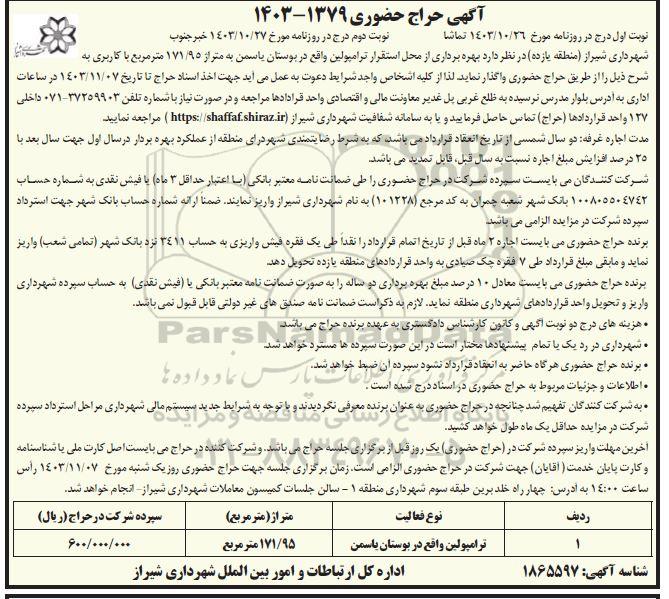 آگهی حراج حضوری ۱۳۷۹-۱۴۰۳
نوبت اول درج در روزنامه مورخ ۱۴۰۳/۱۰/۲۶ تماشا نوبت دوم درج در روزنامه مورخ ۱۴۰۳/۱۰/۲۷ خبرجنوب
شهرداری شیراز (منطقه یازده) در نظر دارد بهره برداری از محل استقرار ترامپولین واقع در بوستان یاسمن به متراژ ۱۷۱/۹۵ مترمربع با کاربری به
شرح ذیل را از طریق حراج حضوری واگذار نماید. لذا از کلیه اشخاص واجد شرایط دعوت به عمل می آید جهت اخذ اسناد حراج تا تاریخ ۱۴۰۳/۱۱/۰۷ در ساعات
اداری به آدرس بلوار مدرس نرسیده به ظلع غربی پل غدیر معاونت مالی و اقتصادی واحد قراردادها مراجعه و در صورت نیاز با شماره تلفن ۳۷۲۵۹۹۰۳-۰۷۱ داخلی
۱۲۷ واحد قراردادها (حراج) تماس حاصل فرمایید و یا به سامانه شفافیت شهرداری شیراز (https://shaffaf.shiraz.ir ) مراجعه نمایید.
مدت اجاره غرفه: دو سال شمسی از تاریخ انعقاد قرارداد می باشد، که به شرط رضایتمندی شهردرای منطقه از عملکرد بهره بردار درسال اول جهت سال بعد با
۲۵ درصد افزایش مبلغ اجاره نسبت به سال قبل، قابل تمدید می باشد.
شرکت کنندگان می بایست سپرده شرکت در حراج حضوری را طی ضمانت نامه معتبر بانکی (با اعتبار حداقل ۳ ماه) یا فیش نقدی به شماره حساب
۱۰۰۸۰۵۵۰۴۷۴۲ بانک شهر شعبه چمران به کد مرجع (۱۰۱۲۲۸) به نام شهرداری شیراز واریز نمایند. ضمنا ارائه شماره حساب بانک شهر جهت استرداد
سپرده شرکت در مزایده الزامی می باشد.
برنده حراج حضوری می بایست اجاره ۲ ماه قبل از تاریخ اتمام قرارداد را نقداً طی یک فقره فیش واریزی به حساب ۳۴۱۱ نزد بانک شهر (تمامی شعب) واریز
نماید و مابقی مبلغ قرارداد طی ۷ فقره چک صیادی به واحد قراردادهای منطقه یازده تحویل دهد.
برنده حراج حضوری می بایست معادل ۱۰ درصد مبلغ بهره برداری دو ساله را به صورت ضمانت نامه معتبر بانکی یا (فیش نقدی) به حساب سپرده شهرداری
واریز و تحویل واحد قراردادهای شهرداری منطقه نماید. لازم به ذکراست ضمانت نامه صندق های غیر دولتی قابل قبول نمی باشد.
• هزینه های درج دو نوبت آگهی و کانون کارشناس دادگستری به عهده برنده حراج می باشد.
• شهرداری در رد یک یا تمام پیشنهادها مختار است در این صورت سپرده ها مسترد خواهد شد.
• برنده حراج حضوری هرگاه حاضر به انعقاد قرارداد نشود سپرده آن ضبط خواهد شد.
• اطلاعات و جزئیات مربوط به حراج حضوری در اسناد درج شده است .
• به شرکت کنندگان تفهیم شد چنانچه در حراج حضوری به عنوان برنده معرفی نگردیدند و با توجه به شرایط جدید سیستم مالی شهرداری مراحل استرداد سپرده
شرکت در مزایده حداقل یک ماه طول خواهد کشید.
آخرین مهلت واریز سپرده شرکت در (حراج حضوری) یک روز قبل از برگزاری جلسه حراج می باشد. و شرکت کننده در حراج می بایست اصل کارت ملی یا شناسنامه
و کارت پایان خدمت ( آقایان) جهت شرکت در حراج حضوری الزامی است. زمان برگزاری جلسه جهت حراج حضوری روز یک شنبه مورخ ۱۴۰۳/۱۱/۰۷ رأس
ساعت ۱۴:۰۰ به آدرس: چهار راه خلدبرین طبقه سوم شهرداری منطقه ۱ - سالن جلسات کمیسون معاملات شهرداری شیراز- انجام خواهد شد.
ردیف نوع فعالیت متراژ(مترمربع) سپرده شرکت در حراج (ریال)
۱ ترامپولین واقع در بوستان یاسمن ۱۷۱/۹۵ مترمربع ۶۰۰/۰۰۰/۰۰۰
شناسه آگهی: ۱۸۶۵۵۹۷ اداره کل ارتباطات و امور بین الملل شهرداری شیراز
ParsNamadData
پایگاه اطلاع رسانی مناقصه و مزایده